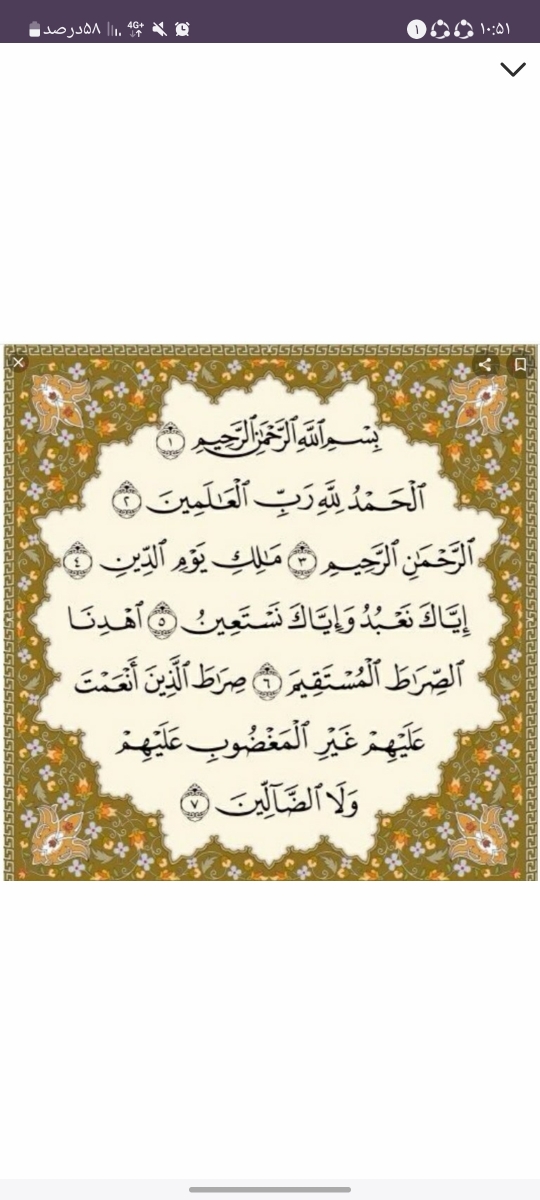 ۱۰:۵۱ ۱ 4G+ ۵۸درصد
بِسْمِ ٱللَّهِ ٱلرَّحْمَٰنِ ٱلرَّحِيمِ ١
ٱلْحَمْدُ لِلَّهِ رَبِّ ٱلْعَٰلَمِينَ ٢
ٱلرَّحْمَٰنِ ٱلرَّحِيمِ ٣ مَٰلِكِ يَوْمِ ٱلدِّينِ ٤
إِيَّاكَ نَعْبُدُ وَإِيَّاكَ نَسْتَعِينُ ٥ ٱهْدِنَا
ٱلصِّرَٰطَ ٱلْمُسْتَقِيمَ ٦ صِرَٰطَ ٱلَّذِينَ أَنْعَمْتَ
عَلَيْهِمْ غَيْرِ ٱلْمَغْضُوبِ عَلَيْهِمْ
وَلَا ٱلضَّآلِّينَ ٧